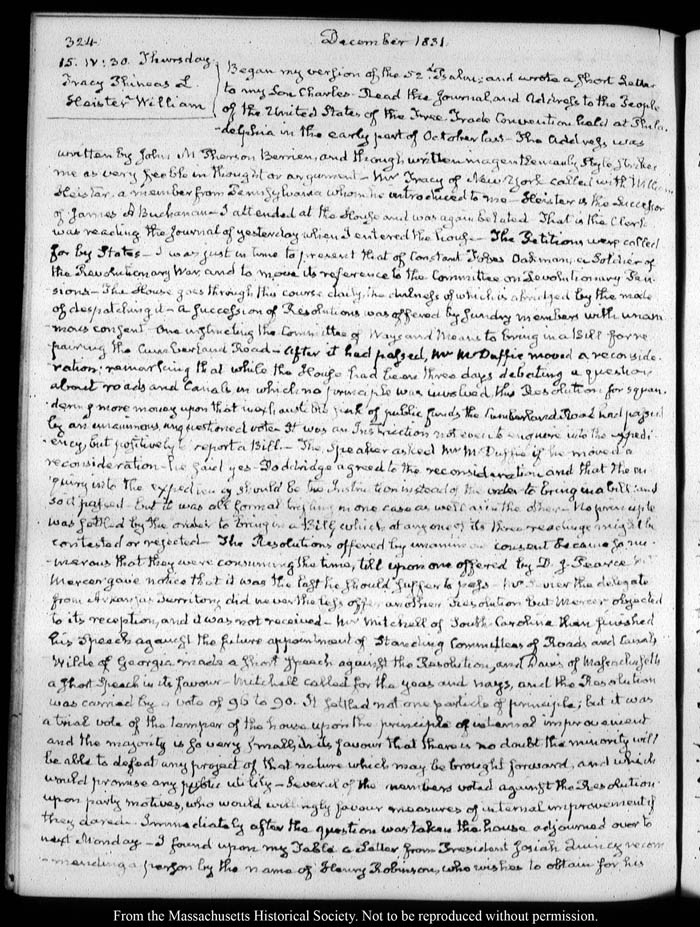 324
December 1831.
15. IV: 30. Thursday
Tracy Phineas L.
Heister William
Began my version of the 52d Psalm; and wrote a short Letter
to my Son Charles. Read the Journal, and Address to the People
of the United States of the Free Trade Convention held at Phila-
-delphia in the early part of October last. The Address was
written by John McPherson Berrien, and though written in a gentlemanly Style, strikes
me as very feeble in thought or argument. Mr Tracy of New York called with William
Heister, a member from Pennsylvania whom he introduced to me. Heister is the Successor
of James Buchanan. I attended at the House and was again belated. That is the Clerk
was reading the Journal of yesterday when I entered the house. The Petitions were called
for by States. I was just in time to present that of Constant Oakman, a Soldier of
the Revolutionary War, and to move its reference to the Committee on Revolutionary Pen-
sions. The House goes through this course daily, the dulness of which is abridged by the mode
of despatching it. A Succession of Resolutions was offered by sundry members with unani-
mous consent. One instructing the Committee of Ways and Means to bring in a Bill for re-
pairing the Cumberland Road. After it had passed, Mr McDuffie moved a reconside-
ration; remarking that while the House had been three days debating a question
about roads and Canals in which no principle was involved this Resolution for squan-
dering more money upon that inexhaustible sink of public funds the Cumberland Road had passed
by an unanimous unquestioned vote. It was an Instruction not even to enquire into the expedi-
ency, but positively to report a Bill. The Speaker asked Mr McDuffie if he moved a
reconsideration. he said yes. Doddridge agreed to the reconsideration and that the en-
quiry into the expediency should be the Instruction instead of the order to bring in a bill: and
so it passed. But it was all formal trifling in one case as well as in the other. No principle
was settled by the order to bring in a Bill, which at any one of its three readings might be
contested or rejected. The Resolutions offered by unanimous consent became so nu-
-merous that they were consuming the time, till upon one offered by D. J. Pearce
Mercer gave notice that it was the last he should suffer to pass. Mr Sevier the delegate
from Arkansas Territory did nevertheless offer another Resolution but Mercer objected
to its reception, and it was not received. Mr Mitchell of South-Carolina then finished
his Speech against the future appointment of Standing Committees of Roads and Canals
Wilde of Georgia made a short Speech against the Resolution, and Davis of Massachusetts
a short Speech in its favour. Mitchell called for the yeas and nays, and the Resolution
was carried by a vote of 96 to 90. It settled not one particle of principle; but it was
a trial vote of the temper of the house upon the principle of internal improvement
and the majority is so very small in its favour that there is no doubt the minority will
be able to defeat any project of that nature which may be brought forward, and which
would promise any public utility. Several of the members voted against the Resolution
upon party motives, who would willingly favour measures of internal improvement if
they dared. Immediately after the question was taken the house adjourned over to
next Monday. I found upon my Table a Letter from President Josiah Quincy recom-
-mending a person by the name of Henry Robinson, who wishes to obtain for his
From the Massachusetts Historical Society. Not to be reproduced without permission.